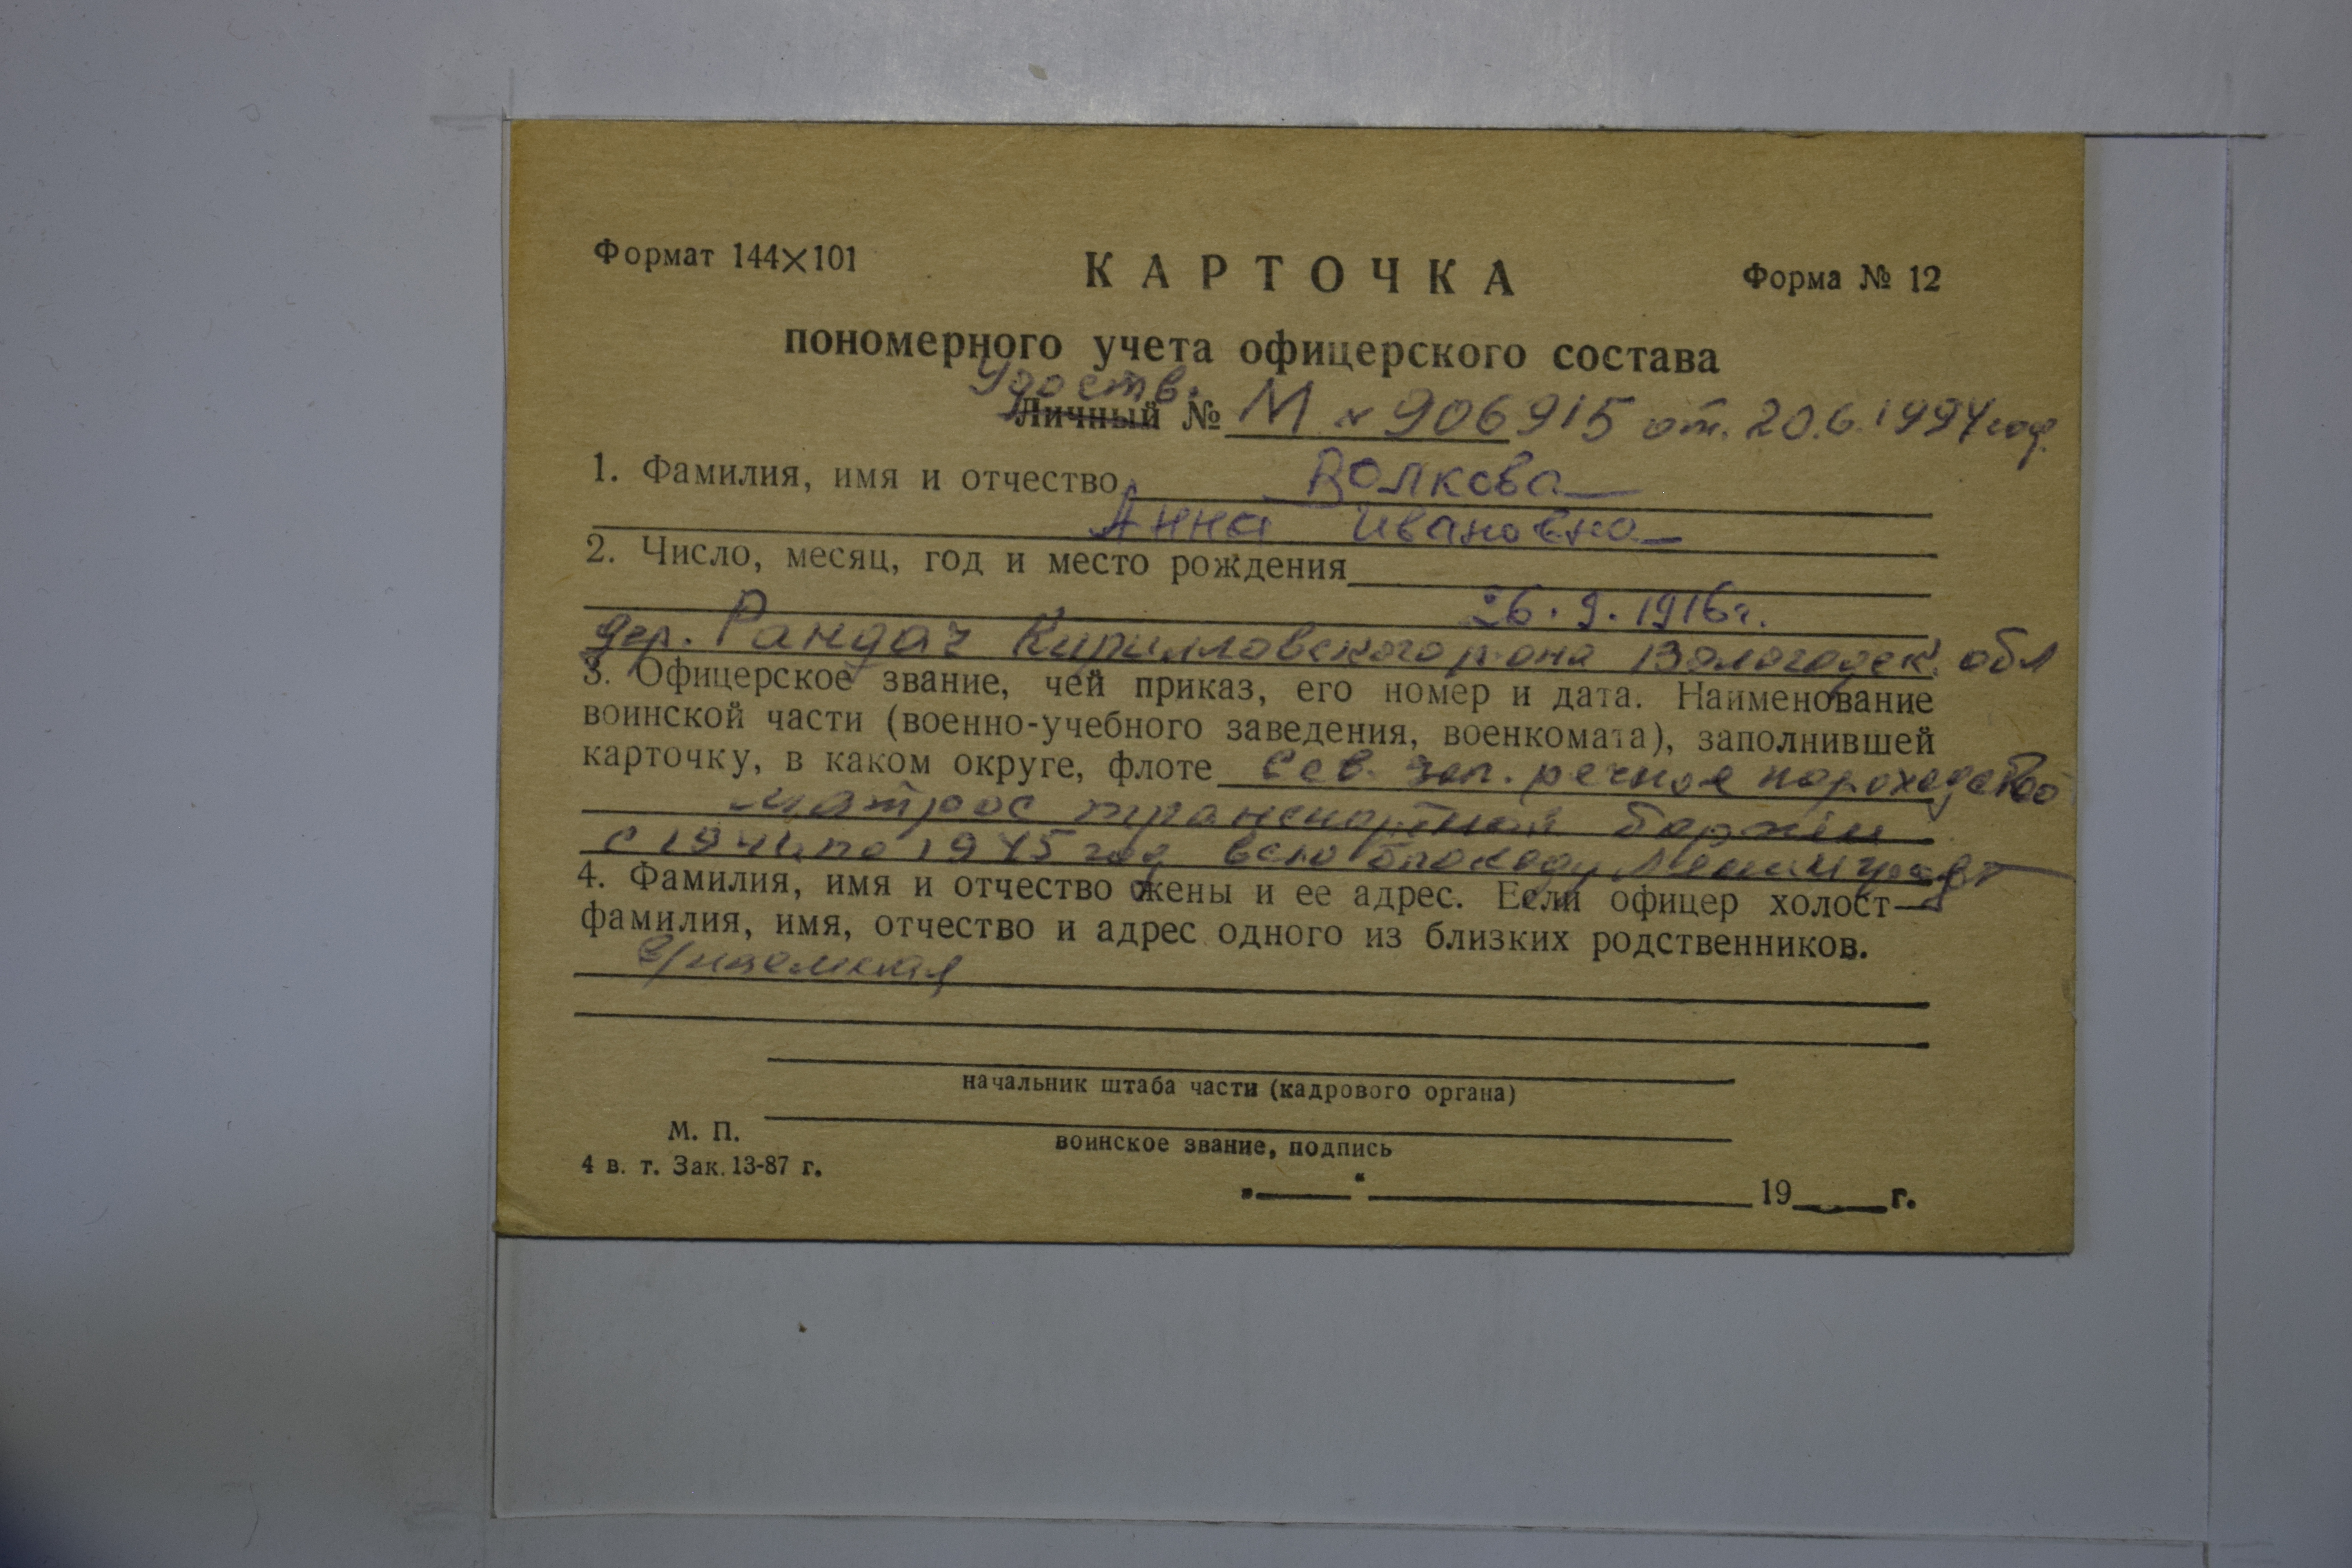 Формат 144×101
КАРТОЧКА
Форма № 12
пономерного учета офицерского состава
Удоств.
Личный № М № 906915 от. 20.6.1994 год.
1. Фамилия, имя и отчество Волкова
Анна Ивановна
2. Число, месяц, год и место рождения
26.9.1916г.
дер. Рандач Кирилловского р-она Вологодск. обл
3. Офицерское звание, чей приказ, его номер и дата. Наименование
воинской части (военно-учебного заведения, военкомата), заполнившей
карточку, в каком округе, флоте Сев. зап. речное пароходство
матрос транспортной баржи
с 1941 по 1945 год всю блокаду
4. Фамилия, имя и отчество жены и ее адрес. Если офицер холост—
фамилия, имя, отчество и адрес одного из близких родственников.
начальник штаба части (кадрового органа)
М. П.
воинское звание, подпись
4 в. т. Зак. 13-87 г.
„ “ 19 г.